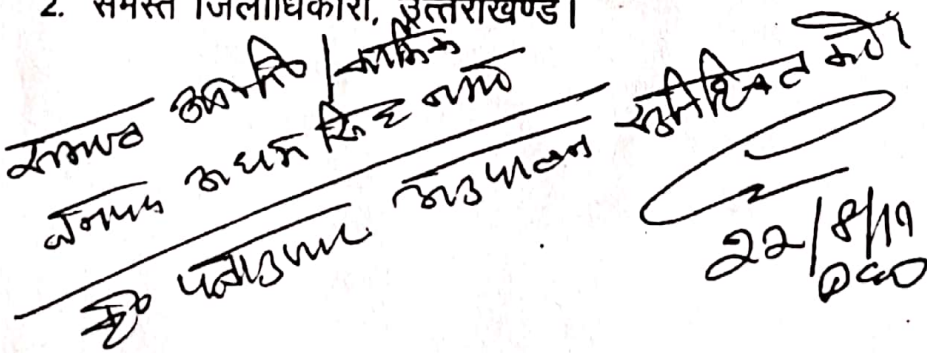 2. समस्त जिलाधिकारी, उत्तराखण्ड।
समस्त कार्मिक
जनपद ऊधम सिंह नगर
कृ० पत्रानुसार अनुपालन सुनिश्चित करें।
22/8/19